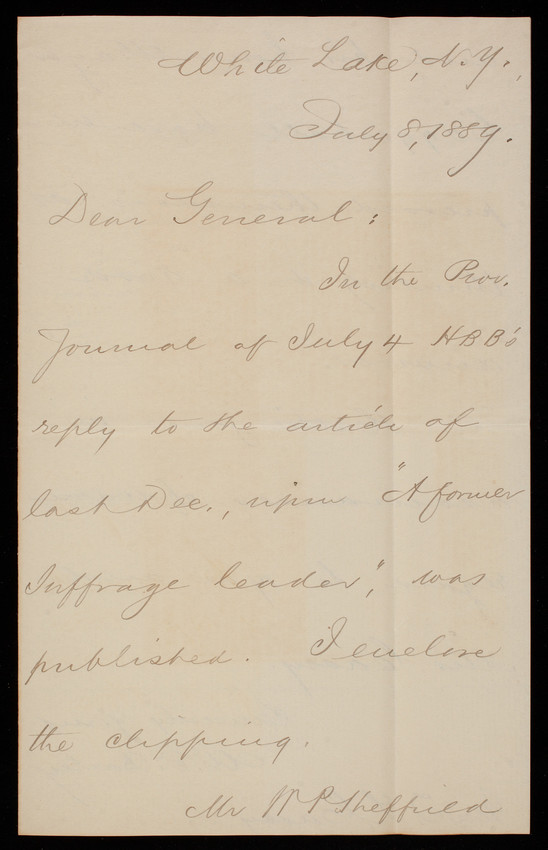 White Lake, N.Y.,
July 8, 1889.
Dear General:
In the Prov.
Journal of July 4 HBB's
reply to the article of
last Dec., upon "A former
Suffrage leader," was
published. I enclose
the clipping.
Mr W P. Sheffield